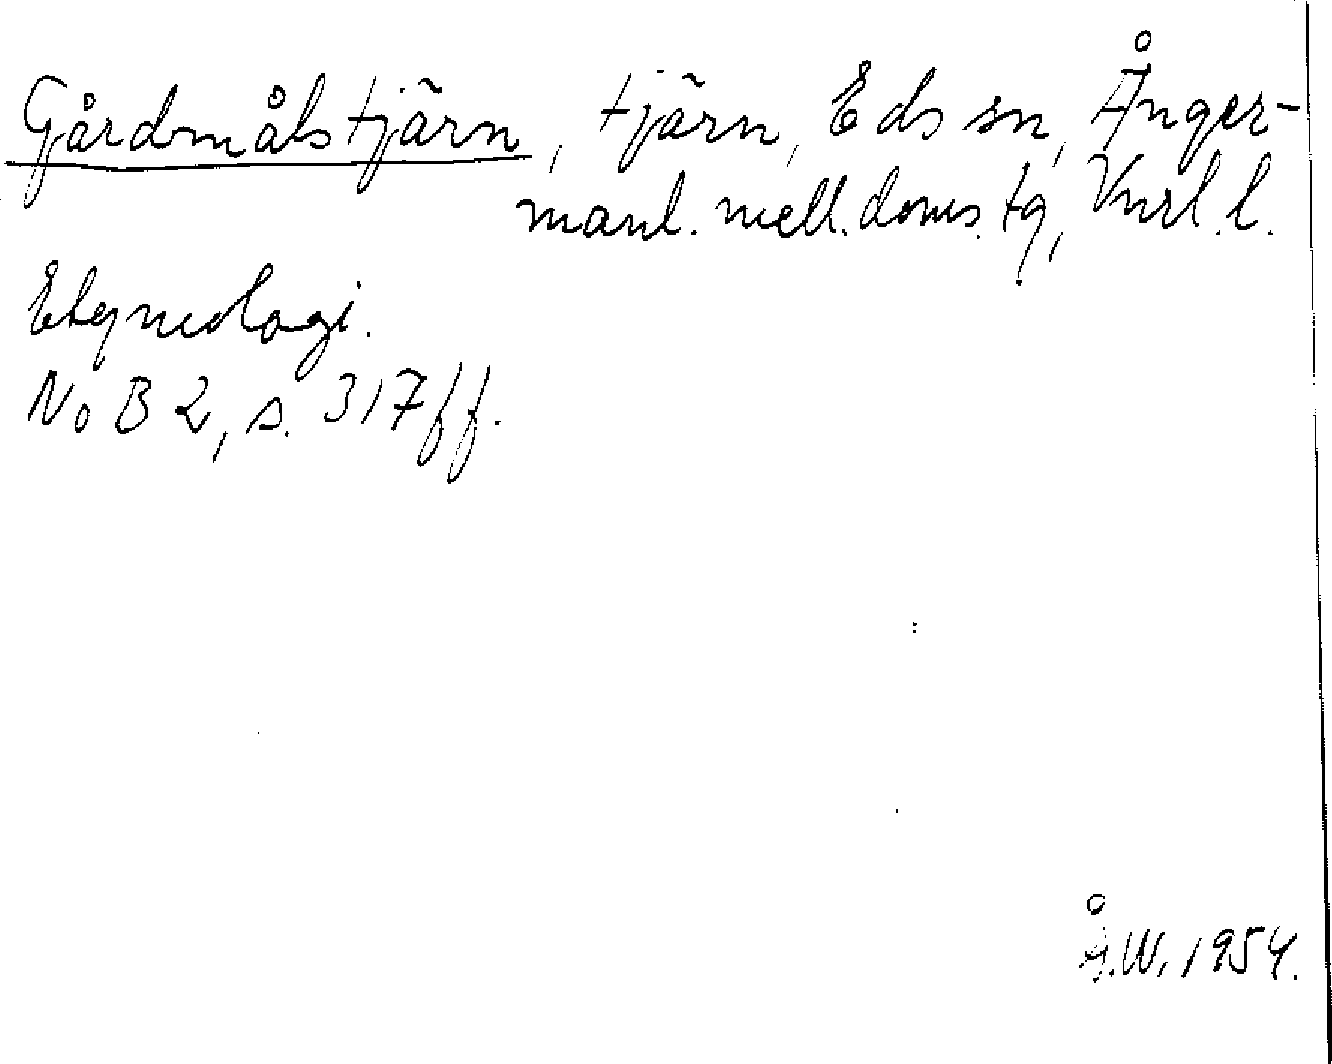 Gårdmålstjärn, tjärn, Eds sn, Ånger-
manl. mell. doms. tg, Vnrl. l.
Etymologi.
NoB 2, s. 317 ff.
Å.W. 1954.